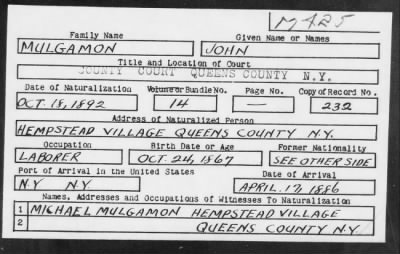 M425
Family Name Given Name or Names
MULGAMON JOHN
Title and Location of Court
COUNTY COURT QUEENS COUNTY N.Y.
Date of Naturalization Volume or Bundle No. Page No. Copy of Record No.
OCT. 18, 1892 14 — 232
Address of Naturalized Person
HEMPSTEAD VILLAGE QUEENS COUNTY N.Y.
Occupation Birth Date or Age Former Nationality
LABORER OCT. 24, 1867 SEE OTHER SIDE
Port of Arrival in the United States Date of Arrival
N.Y. N.Y. APRIL. 17, 1886
Names, Addresses and Occupations of Witnesses To Naturalization
1 MICHAEL MULGAMON HEMPSTEAD VILLAGE
2 QUEENS COUNTY N.Y.